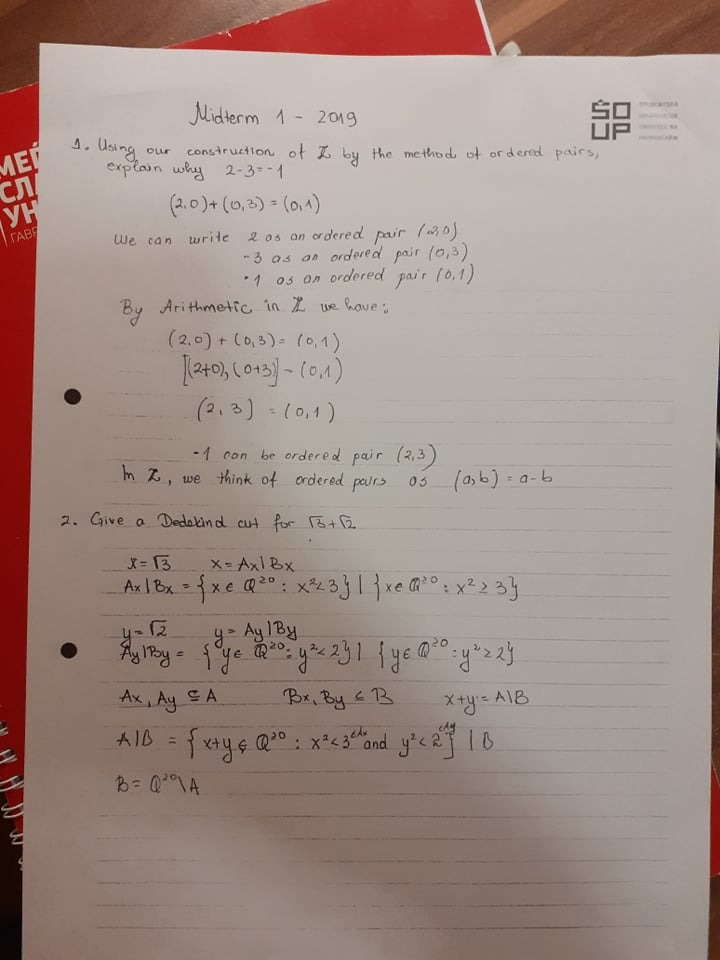 Midterm 1 - 2019
ŠO
UP
1. Using our construction of ℤ by the method of ordered pairs,
explain why 2-3=-1
(2,0)+(0,3)=(0,1)
We can write 2 as an ordered pair (2,0)
-3 as an ordered pair (0,3)
-1 as an ordered pair (0,1)
By Arithmetic in ℤ we have:
(2,0) + (0,3) = (0,1)
[(2+0),(0+3)] = (0,1)
(2,3] = (0,1)
-1 can be ordered pair (2,3)
In ℤ, we think of ordered pairs as (a,b) = a-b
2. Give a Dedekind cut for √3+√2
x=√3 x=Ax|Bx
Ax|Bx = {x∈ℚ≥0 : x²<3} | {x∈ℚ≥0 : x²≥3}
y=√2 y=Ay|By
Ay|By = {y∈ℚ≥0 : y²<2} | {y∈ℚ≥0 : y²≥2}
Ax, Ay ⊆ A Bx, By ⊆ B x+y = A|B
A|B = {x+y ∈ ℚ≥0 : x²<3 ∈Ax and y²<2 ∈Ay} | B
B = ℚ≥0\A
МЕ
СЛ
УН
ГАВР